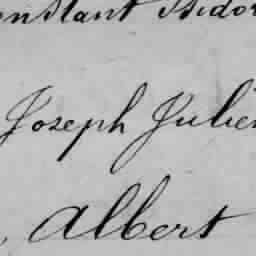 onstant Isidor
Joseph Julien
, Albert